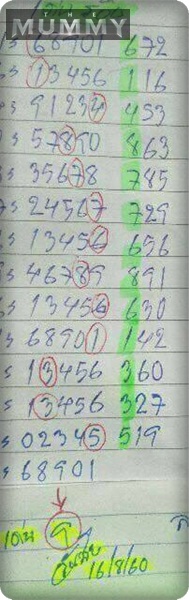 MUMMY
68901 672
13456 116
91234 453
57890 863
35678 785
24567 729
13456 656
46789 891
13456 630
68901 142
13456 360
13456 327
02345 519
68901
16/8/60